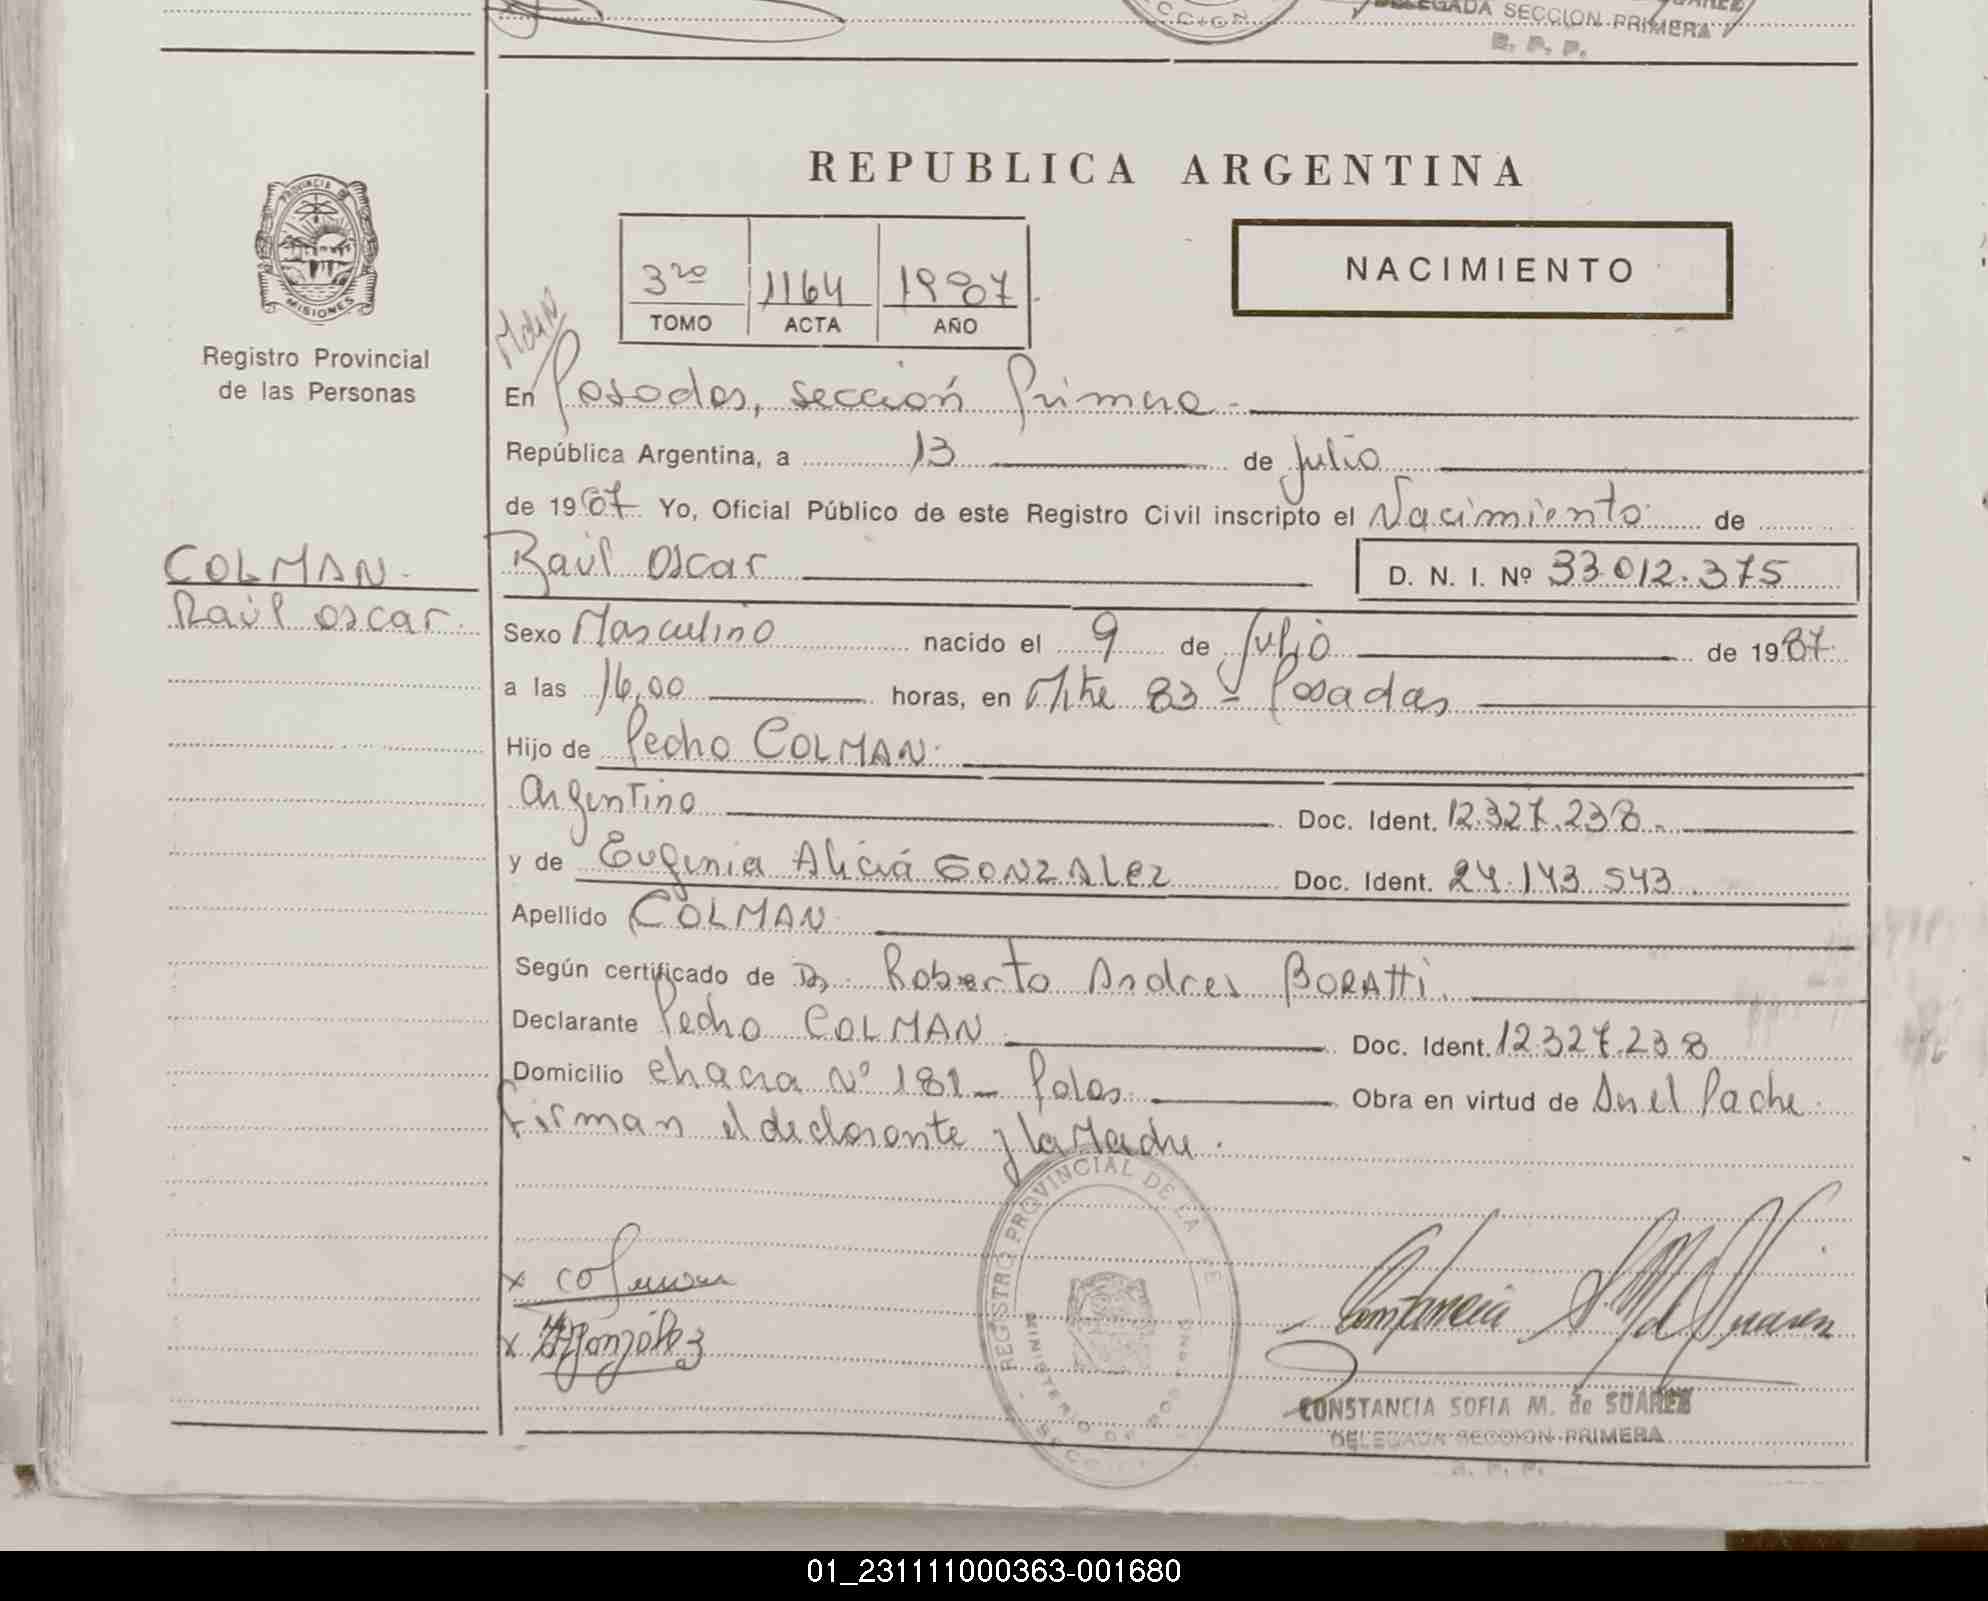 CCION
DELEGADA SECCION PRIMERA
R. P. P.
REPUBLICA ARGENTINA
PROVINCIA DE
MISIONES
Registro Provincial
de las Personas
3ro 1164 1987
TOMO ACTA AÑO
NACIMIENTO
En Posadas, sección Primera -
República Argentina, a 13 de Julio
de 1987 Yo, Oficial Público de este Registro Civil inscripto el Nacimiento de
COLMAN -
Raúl Oscar
Raúl Oscar D. N. I. Nº 33.012.375
Sexo Masculino nacido el 9 de Julio de 1987
a las 16,00 horas, en Mitre 83 - Posadas
Hijo de Pedro COLMAN
Argentino Doc. Ident. 12.327.238 -
y de Eugenia Alicia GONZALEZ Doc. Ident. 24.143.543
Apellido COLMAN
Según certificado de Dr. Roberto Andres BORATTI
Declarante Pedro COLMAN Doc. Ident. 12.327.238
Domicilio chacra Nº 181 - Pdas Obra en virtud de Ser el Padre
Firman el declarante y la Madre.
REGISTRO PROVINCIAL DE LA
MINISTERIO DE
x Colman
x González
Constancia S. M de Suarez
CONSTANCIA SOFIA M. de SUAREZ
DELEGADA SECCION PRIMERA
R. P. P.
01_231111000363-001680